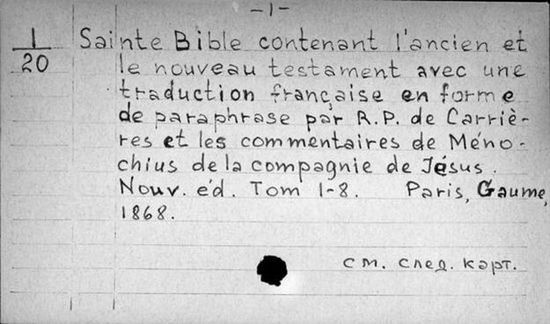 -1-
1/20
Sainte Bible contenant l'ancien et
le nouveau testament avec une
traduction française en forme
de paraphrase par R.P. de Carriè-
res et les commentaires de Méno-
chius de la compagnie de Jésus.
Nouv. éd. Tom 1-8. Paris, Gaume,
1868.
см. след. карт.